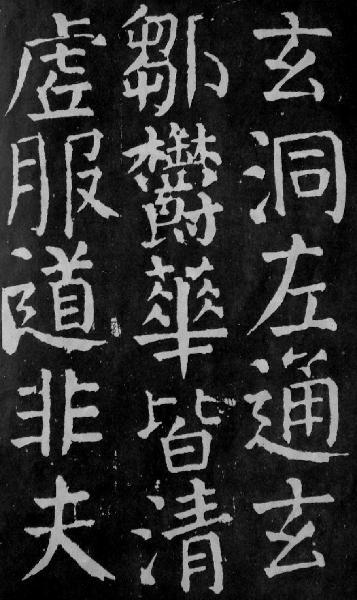 玄洞左通玄
鄒鬱華皆清
虛服道非夫